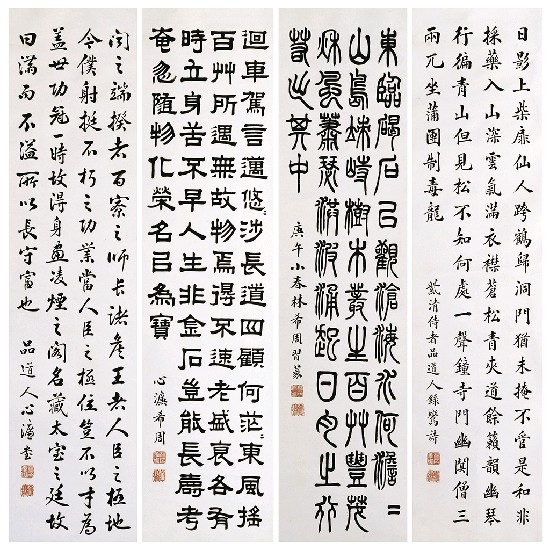 日影上柴扉仙人跨鶴歸洞門猶未掩不管是和非
採藥入山深雲氣滿衣襟蒼松青夾道餘籟韻幽琴
行徧青山但見松不知何處一聲鐘寺門幽闃僧三
兩兀坐蒲團制毒龍
清侍者品道人錄鷲詩
東臨碣石以觀滄海水何澹=
山島竦峙樹木叢生百艸豐茂
秋風蕭瑟洪波涌起日月之行
若出其中
庚午小春林希周習篆
迴車駕言邁悠=涉長道四顧何茫=東風搖
百艸所遇無故物焉得不速老盛衰各有
時立身苦不早人生非金石豈能長壽考
奄忽隨物化榮名以為寶
心瀛希周
聞之端揆者百寮之師長諸侯王者人臣之極地
今僕射挺不朽之功業當人臣之極位豈不以才為
蓋世功冠一時故得身畫凌煙之閣名藏太室之廷故
曰滿而不溢所以長守富也
品道人心瀛